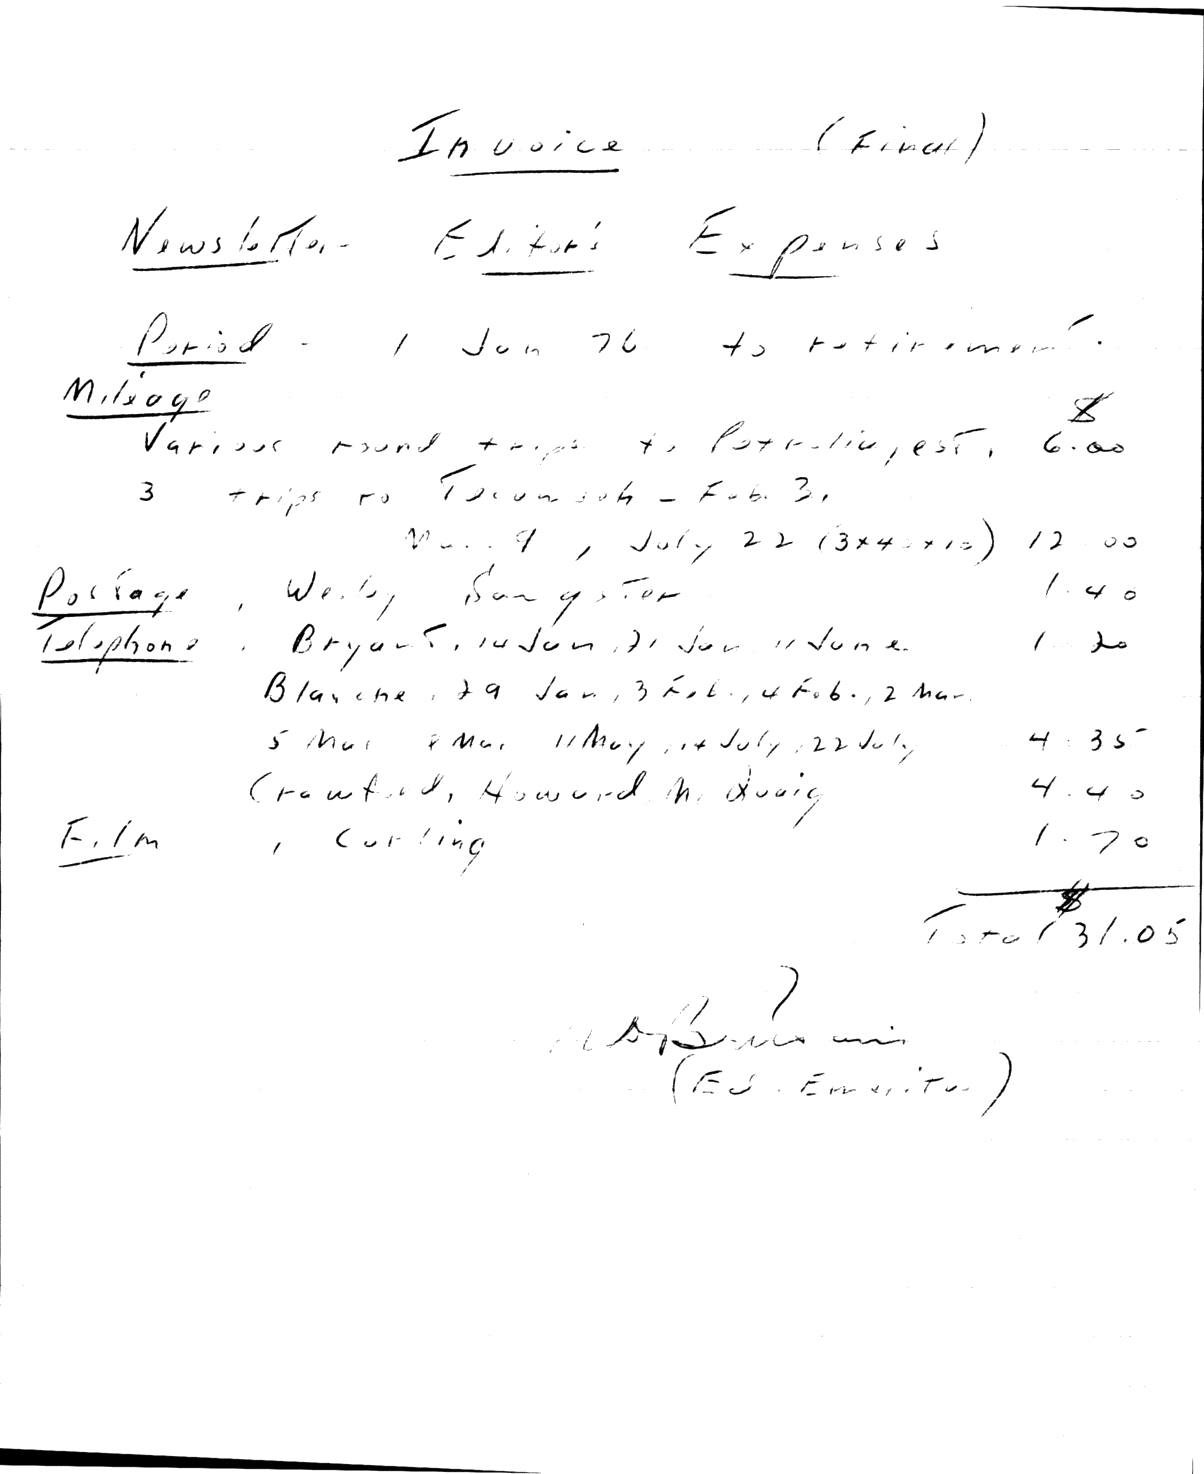 Invoice (Final)
Newsletter Editor's Expenses
Period - 1 Jan 76 to retirement.
Mileage $
Various round trips to Petrolia, est. 6.00
3 trips to Tecumseh - Feb. 3,
Mar. 9, July 22 (3x40x10) 12.00
Postage, Sangster 1.40
Telephone, Bryant, 14 Jan, 21 Jan 11 June 1.20
Blanche, 29 Jan, 3 Feb., 4 Feb., 2 Mar.
5 Mar 8 Mar 11 May, 14 July, 22 July 4.35
Crawford, Howard, McQuaig 4.40
Film, Curling 1.70
$
Total 31.05
(Ed. Emeritus)